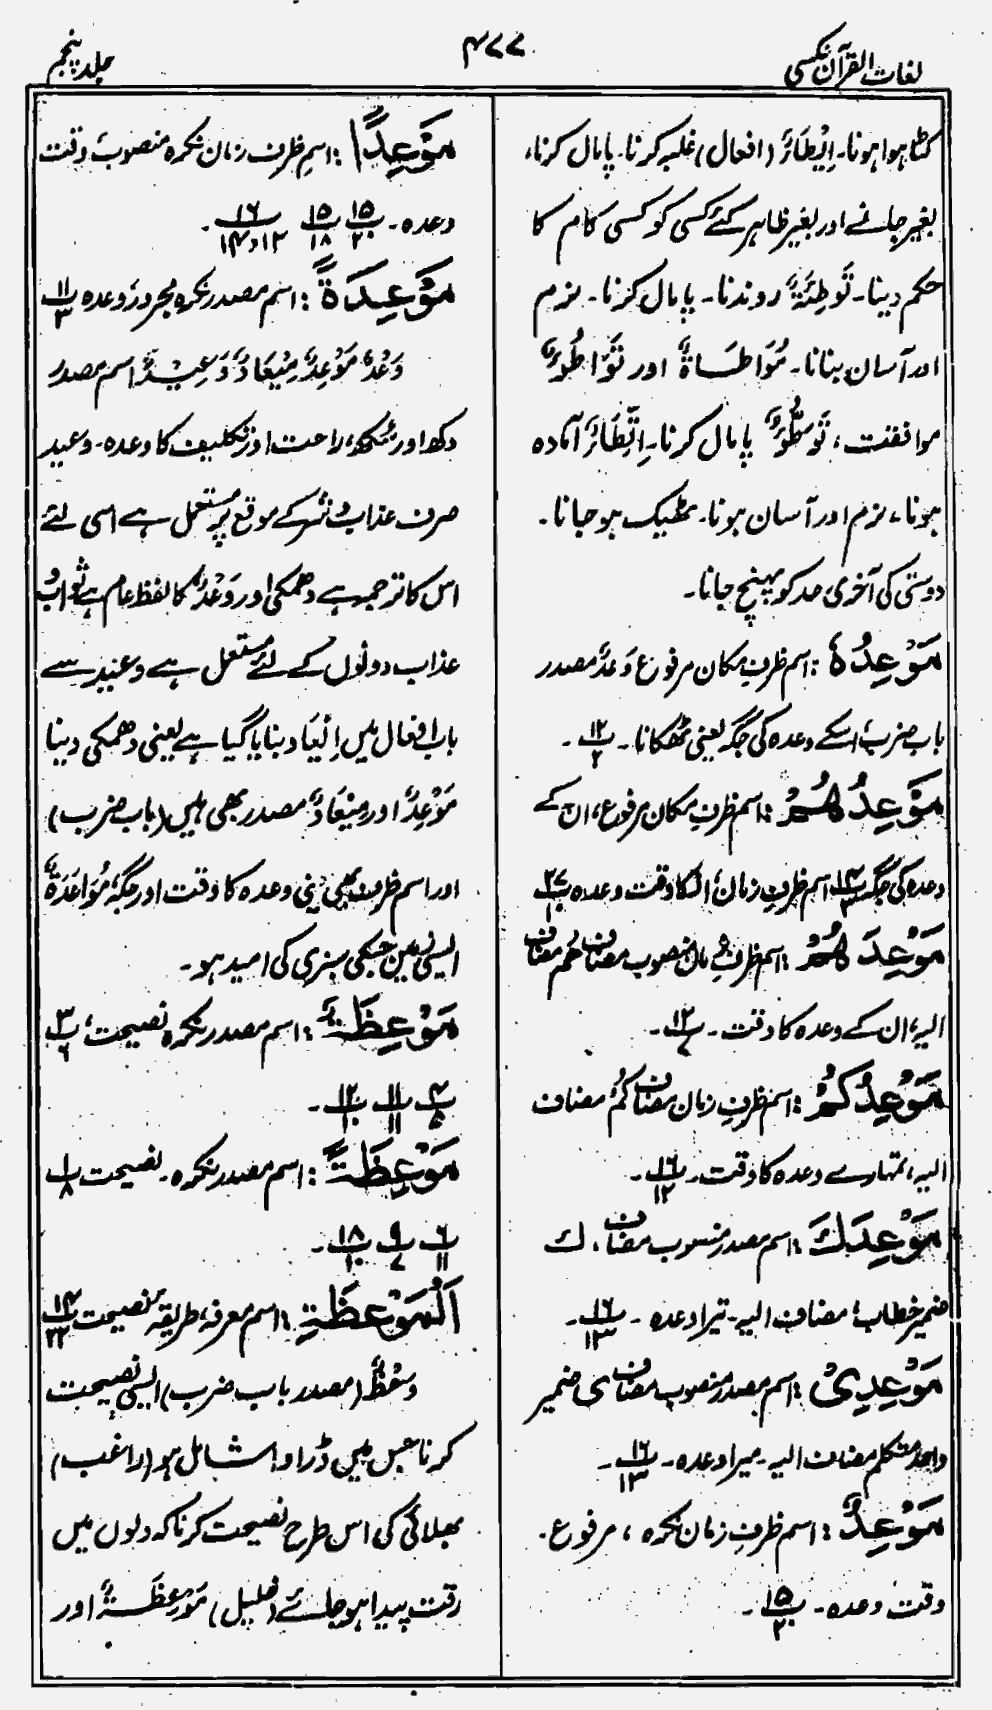 لغات القرآن نکسی
۴۷۷
جلد پنجم
کٹا ہوا ہونا۔ اِیْطَاءٌ (افعال) غلبہ کرنا۔ پامال کرنا،
بغیر جانے اور بغیر ظاہر کئے کسی کو کسی کام کا
حکم دینا۔ تَوْطِئَةٌ روندنا۔ پامال کرنا۔ نرم
اور آسان بنانا۔ مُوَاطَاةٌ اور تَوَاطُؤٌ
موافقت، تَوَطُّؤٌ پامال کرنا۔ اِتِّطَاءٌ آمادہ
ہونا، نرم اور آسان ہونا۔ ٹھیک ہو جانا۔
دوستی کی آخری حد کو پہنچ جانا۔
مَوْعِدُهٗ: اسم ظرفِ مکان مرفوع وَعْدٌ مصدر
باب ضرب، اسکے وعدہ کی جگہ یعنی ٹھکانا۔ ۱۲/۲۔
مَوْعِدُهُمْ: اسم ظرفِ مکان مرفوع، ان کے
وعدہ کی جگہ ۱۴/۳ اسم ظرفِ زمان، ان کا وقت وعدہ ۲۷/۱۰
مَوْعِدَهُمْ: اسم ظرفِ زمان منصوب مضاف ھُم مضاف
الیہ، ان کے وعدہ کا وقت۔ ۱۲/۷۔
مَوْعِدُكُمْ: اسم ظرفِ زمان مضاف كُمْ مضاف
الیہ، تمہارے وعدہ کا وقت۔ ۱۶/۱۲۔
مَوْعِدَكَ: اسم مصدر منصوب مضاف، ك
ضمیر خطاب، مضاف الیہ۔ تیرا وعدہ۔ ۱۶/۱۳۔
مَوْعِدِىْ: اسم مصدر منصوب مضاف ی ضمیر
واحد متکلم مضاف الیہ۔ میرا وعدہ۔ ۱۶/۱۳۔
مَوْعِدٌ: اسم ظرفِ زمان نکرہ، مرفوع۔
وقت وعدہ۔ ۱۵/۲۰۔
مَوْعِدًا: اسم ظرف زمان نکرہ منصوب، وقت
وعدہ۔ ۱۵/۲۰ ۱۵/۱۸ ۱۶/۱۲و۱۴۔
مَوْعِدَةٍ: اسم مصدر نکرہ مجرور، وعدہ ۱۱/۳
وَعْدٌ، مَوْعِدٌ، مِیْعَادٌ، وَعِیْدٌ اسم مصدر
دکھ اور سُکھ، راحت اور تکلیف کا وعدہ۔ وعید
صرف عذاب و شر کے موقع پر مستعمل ہے اسی لئے
اس کا ترجمہ ہے دھمکی اور وَعْدٌ کا لفظ عام ہے ثواب و
عذاب دونوں کے لئے مستعمل ہے وعید سے
باب افعال میں اِیْعَاد بنایا گیا ہے یعنی دھمکی دینا
مَوْعِدٌ اور مِیْعَادٌ مصدر بھی ہیں (باب ضرب)
اور اسم ظرف بھی یعنی وعدہ کا وقت اور جگہ، مُوَاعَدَةٌ
ایسی زمین جسکی سبزی کی امید ہو۔
مَوْعِظَةٌ: اسم مصدر نکرہ نصیحت، ۳/۶
۴/۵ ۱۱/۱۱ ۱۲/۱۰۔
مَوْعِظَةً: اسم مصدر نکرہ۔ نصیحت ۱/۸
۶/۱۱ ۹/۷ ۱۸/۱۰۔
اَلْمَوْعِظَةِ: اسم معرفہ، طریقہ نصیحت ۱۴/۲۲
وَعْظٌ (مصدر باب ضرب) ایسی نصیحت
کرنا جس میں ڈراوا شامل ہو (راغب)
بھلائی کی اس طرح نصیحت کرنا کہ دلوں میں
رقت پیدا ہو جائے (خلیل) مَوْعِظَةٌ اور